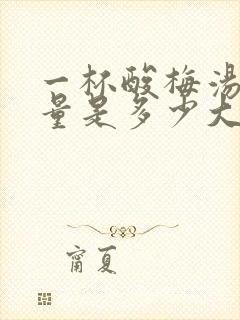 一杯酸梅汤
量是多少大
甯夏